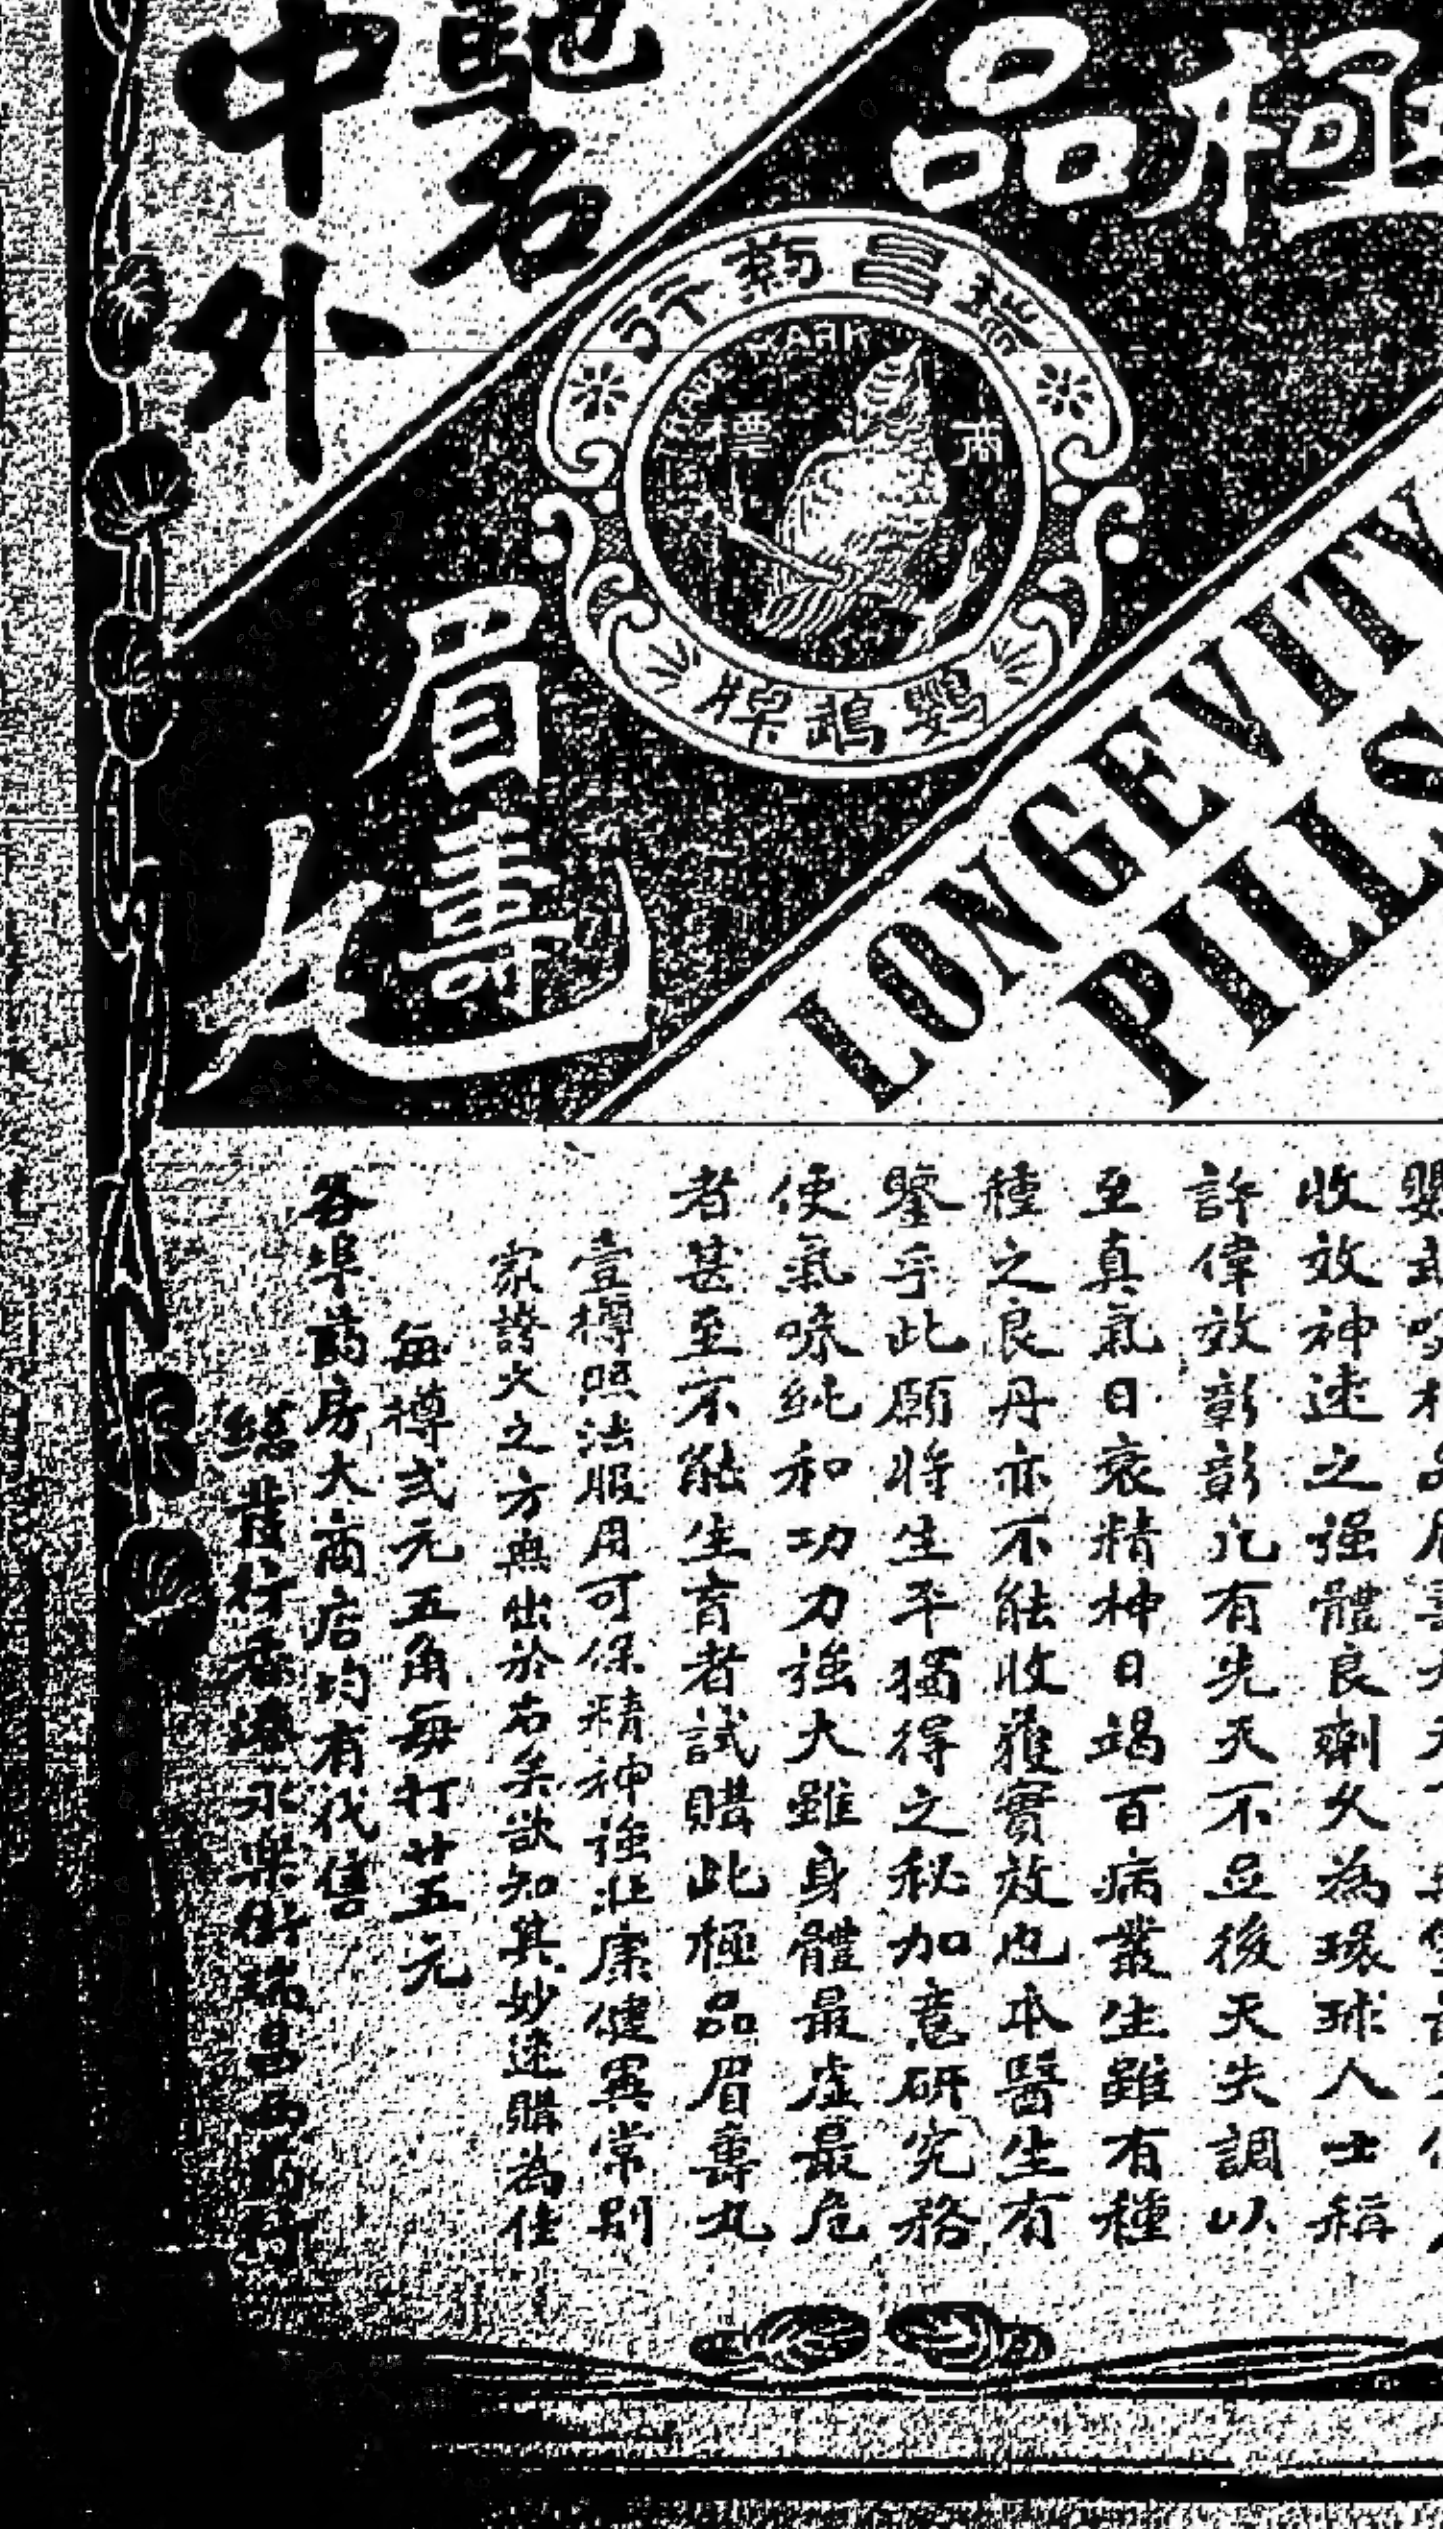 馳名
中外
極品
瑞昌葯行
MARK
商標
鸚鵡牌
眉壽
丸
LONGEVITY
PILLS
收效神速之强體良劑久為環球人士稱
許偉效彰彰凡有先天不足後天失調以
至真氣日衰精神日竭百病叢生雖有種
種之良丹亦不能收獲實效也本醫生有
鑒乎此願將生平獨得之秘加意研究務
使氣味純和功力強大雖身體最虛最危
者甚至不能生育者試購此極品眉壽丸
壹樽照法服用可保精神強壯康健異常別
家誇大之方無出於右矣欲知其妙速購為佳
每樽弍元五角每打廿五元
各埠葯房大商店均有代售
總發行香港永樂街瑞昌西葯行